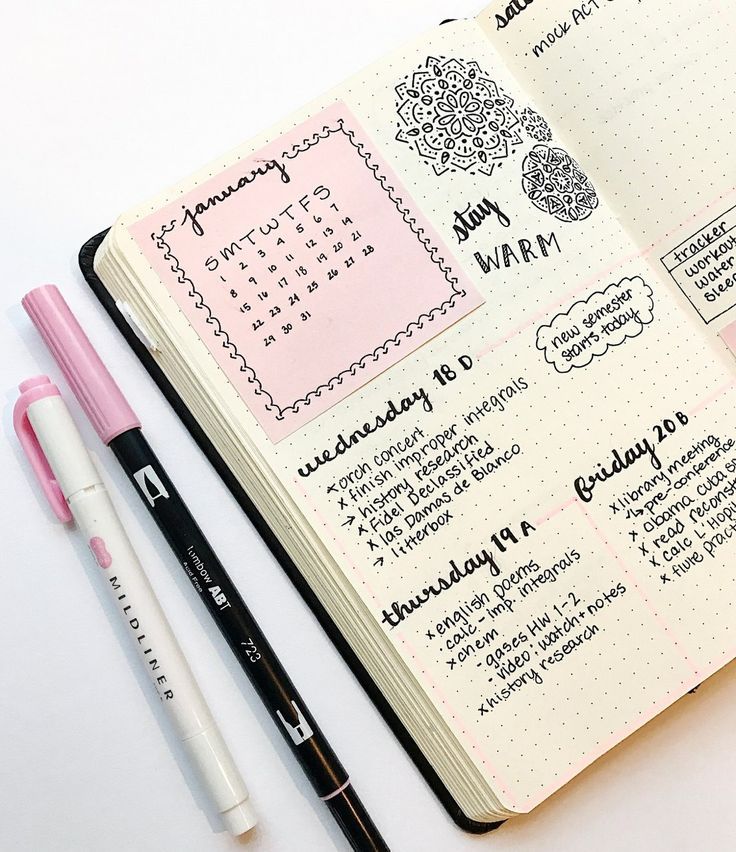 january
S M T W T F S
1 2 3 4 5 6 7
8 9 10 11 12 13 14
15 16 17 18 19 20 21
22 23 24 25 26 27 28
29 30 31
stay
WARM
new semester
starts today
wednesday 18 D
x orch concert
x finish improper integrals
→ history research
x Fidel Declassified
x las Damas de Blanco
→ litterbox
thursday 19 A
x english poems
· calc - imp. integrals
x chem
- gases HW 1-2
- video: watch + notes
x history research
friday 20 B
x library meeting
↳ pre-conference
x obama cuba
x read
x calc
x flute
mock ACT
tracker
workout
water
sleep
MILDLINER
Tombow ABT
Acid Free
723